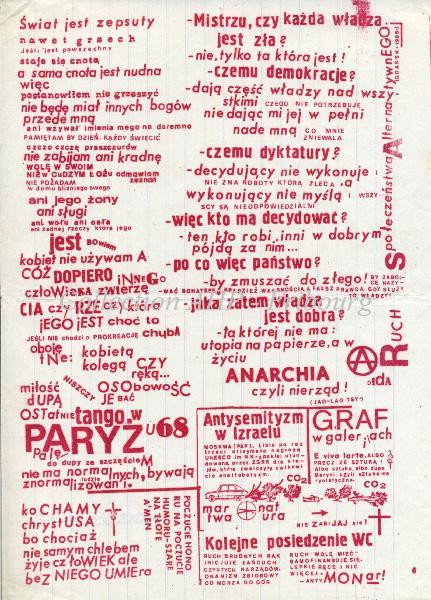 Świat jest zepsuty
nawet grzech
Jeśli jest powszechny
staje się cnotą
a sama cnota jest nudna
więc
postanowiłem nie grzeszyć
nie będę miał innych bogów
przede mną
ani wzywał imienia mego na daremno
PAMIĘTAM BY DZIEŃ KAŻDY ŚWIĘCIĆ
nie zabijam ani kradnę
WOLĘ W SWOIM
NIŻ W CUDZYM ŁOŻU odmawiam
NIE POŻĄDAM zeznań
w domu bliźniego swego
ani jego żony
ani sługi
ani wołu ani osła
ani żadnej rzeczy która jego
jest bowiem
kobiet nie używam A
CÓŻ DOPIERO iNNeGo
człoWieKA zwierzę
CIA czy RZEczy które
jEGO jEST choć to
JEŚLI NIE chodzi o PROKREACJĘ chybA
obojE
iNe: kobietą
kolegą CZY
ręką...
miłość NISZCZY OSObowość
dUPĄ JE BAĆ
OSTatNIE tango w
PARYŻU 68
Palę
do dupy ze szczęścieM
nie ma normalnych, bywają
ludzie
znormalizowani.
koCHAMY
chrystUSA
bo chociaż
nie samym chlebem
żyje czŁoWIEK ale
beZ NIEGO UMIEra
POCZUCIE HONO
RU NA POCZUCIE
HUMORU-SZARE
NA ZŁOTE
A'MEN
-Mistrzu, czy każda władza
jest zła?
-nie, tylko ta która jest!
-czemu demokracje?
-dają część władzy nad wszy
stkimi CZEGO NIE POTRZEBUJĘ
nie dając mi jej w pełni
nade mną CO MNIE
ZNIEWALA
-czemu dyktatury?
-decydujący nie wykonuje
NIE ZNA ROBOTY KTÓRĄ ZLECA a
wykonujący nie myśli WSZY
SCY SĄ NIEODPOWIEDZIALNI
-więc kto ma decydować?
-ten kto robi, inni w dobrym
pójdą za nim...
-po co więc państwo?
-by zmuszać do złego!
-jaka zatem władza
jest dobra?
-ta której nie ma:
utopia na papierze, a w
życiu
ANARCHIA
czyli nierząd!
(JAO-LAO TSY)
RUCH Społeczeństwa AlternatywnEGO
GDAŃSK-1986
Antysemityzm
w Izraelu
MOSKWA [PAP]. Libia po raz
trzeci otrzymała nagrodę
UNESCO
ufundowaną, przez ZSRR dla kra
jów, które zwalczyły całkowi
cie analfabetyzm
CO2
martwa natura
GRAF
w galerjach
E viva l'arte. ALBO
PRECZ ZE SZTUKĄ!
Albo sztuka, albo dupa
CO2
NIE ZABIJAJ się!
Kolejne posiedzenie WC
RUCH BRUDNYCH RĄK
INICJUJE ŁAŃCUCH
CZYSTYCH NARZĄDÓW.
ONANIZM ZBIOROWY
OD MORZA DO GÓR
RUCH "WOLĘ MIEĆ"
SAMOFINANSUJE SIĘ.
LEPKIE RĘCE I NIC
WIĘCEJ.
-ANTY MONar!